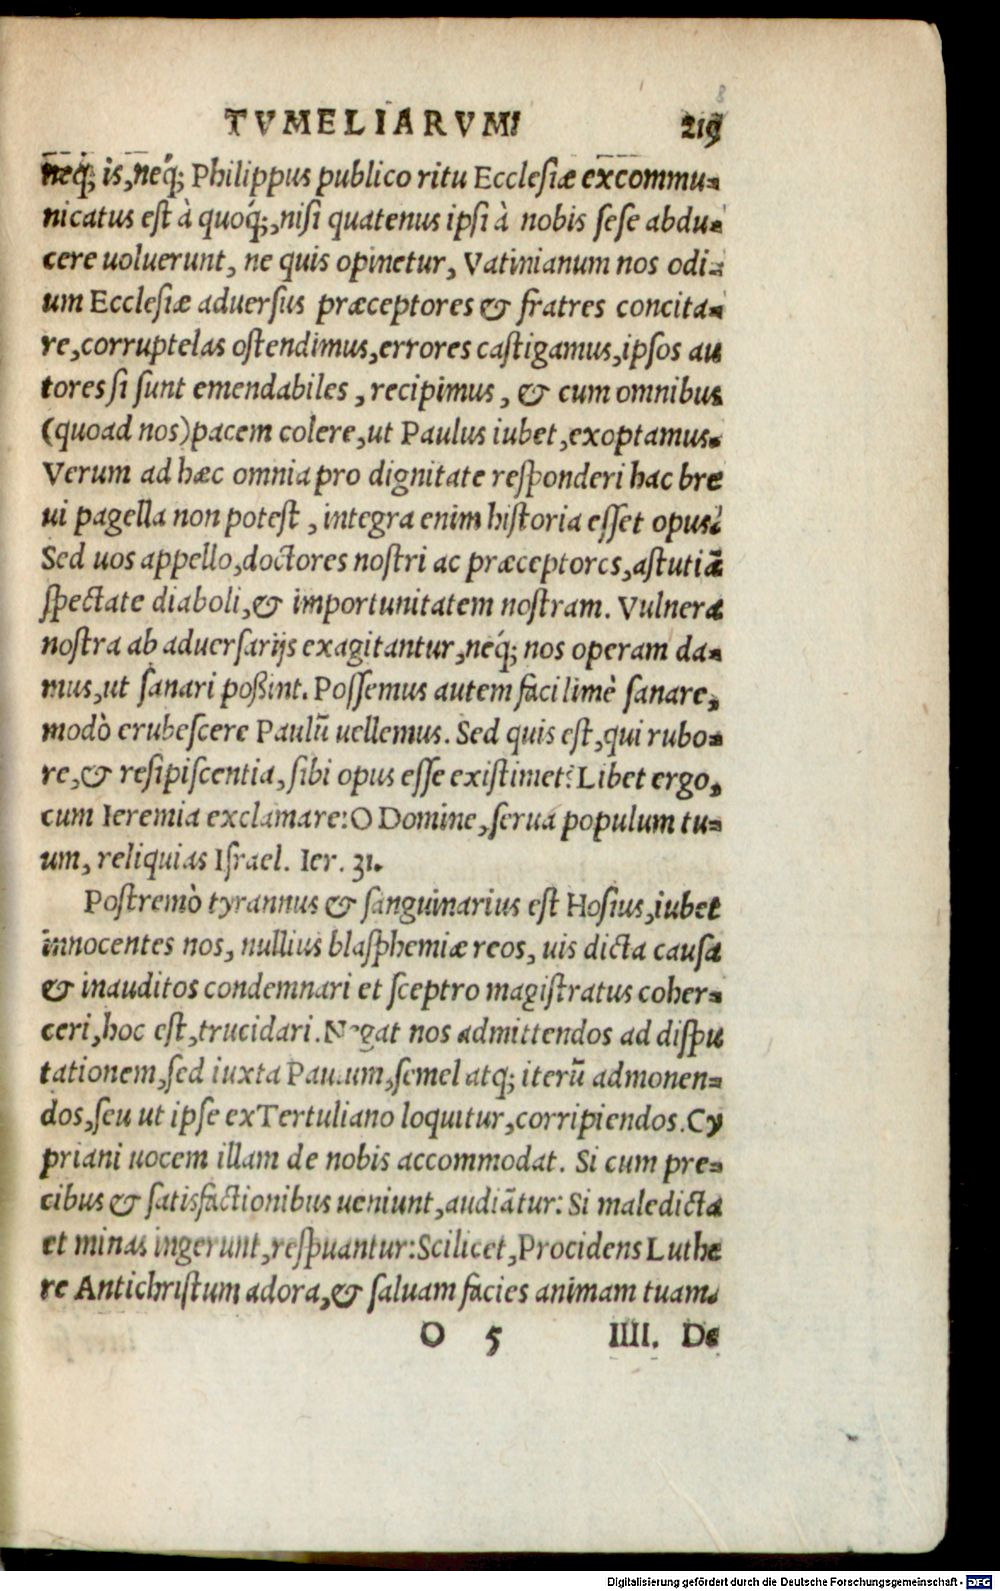 TVMELIARVM. 219
8
neq́; is, neq́; Philippus publico ritu Ecclesiæ excommu-
nicatus est à quoq́;, nisi quatenus ipsi à nobis sese abdu-
cere uoluerunt, ne quis opinetur, Vatinianum nos odi-
um Ecclesiæ aduersus præceptores & fratres concita-
re, corruptelas ostendimus, errores castigamus, ipsos au
tores si sunt emendabiles, recipimus, & cum omnibus
(quoad nos) pacem colere, ut Paulus iubet, exoptamus.
Verum ad hæc omnia pro dignitate responderi hac bre
ui pagella non potest, integra enim historia esset opus.
Sed uos appello, doctores nostri ac præceptores, astutiã
spectate diaboli, & importunitatem nostram. Vulnera
nostra ab aduersarijs exagitantur, neq́; nos operam da-
mus, ut sanari poßint. Possemus autem facilimè sanare,
modò erubescere Paulũ uellemus. Sed quis est, qui rubo-
re, & resipiscentia, sibi opus esse existimet? Libet ergo,
cum Ieremia exclamare: O Domine, serua populum tu-
um, reliquias Israel. Ier. 31.
Postremò tyrannus & sanguinarius est Hosius, iubet
innocentes nos, nullius blasphemiæ reos, uis dicta causa
& inauditos condemnari et sceptro magistratus coher-
ceri, hoc est, trucidari. Negat nos admittendos ad dispu
tationem, sed iuxta Paulum, semel atq; iterũ admonen-
dos, seu ut ipse ex Tertuliano loquitur, corripiendos. Cy
priani uocem illam de nobis accommodat. Si cum pre-
cibus & satisfactionibus ueniunt, audiãtur: Si maledicta
et minas ingerunt, respuantur: Scilicet, Procidens Luthe
re Antichristum adora, & saluam facies animam tuam.
O 5 IIII. De
Digitalisierung gefördert durch die Deutsche Forschungsgemeinschaft - DFG